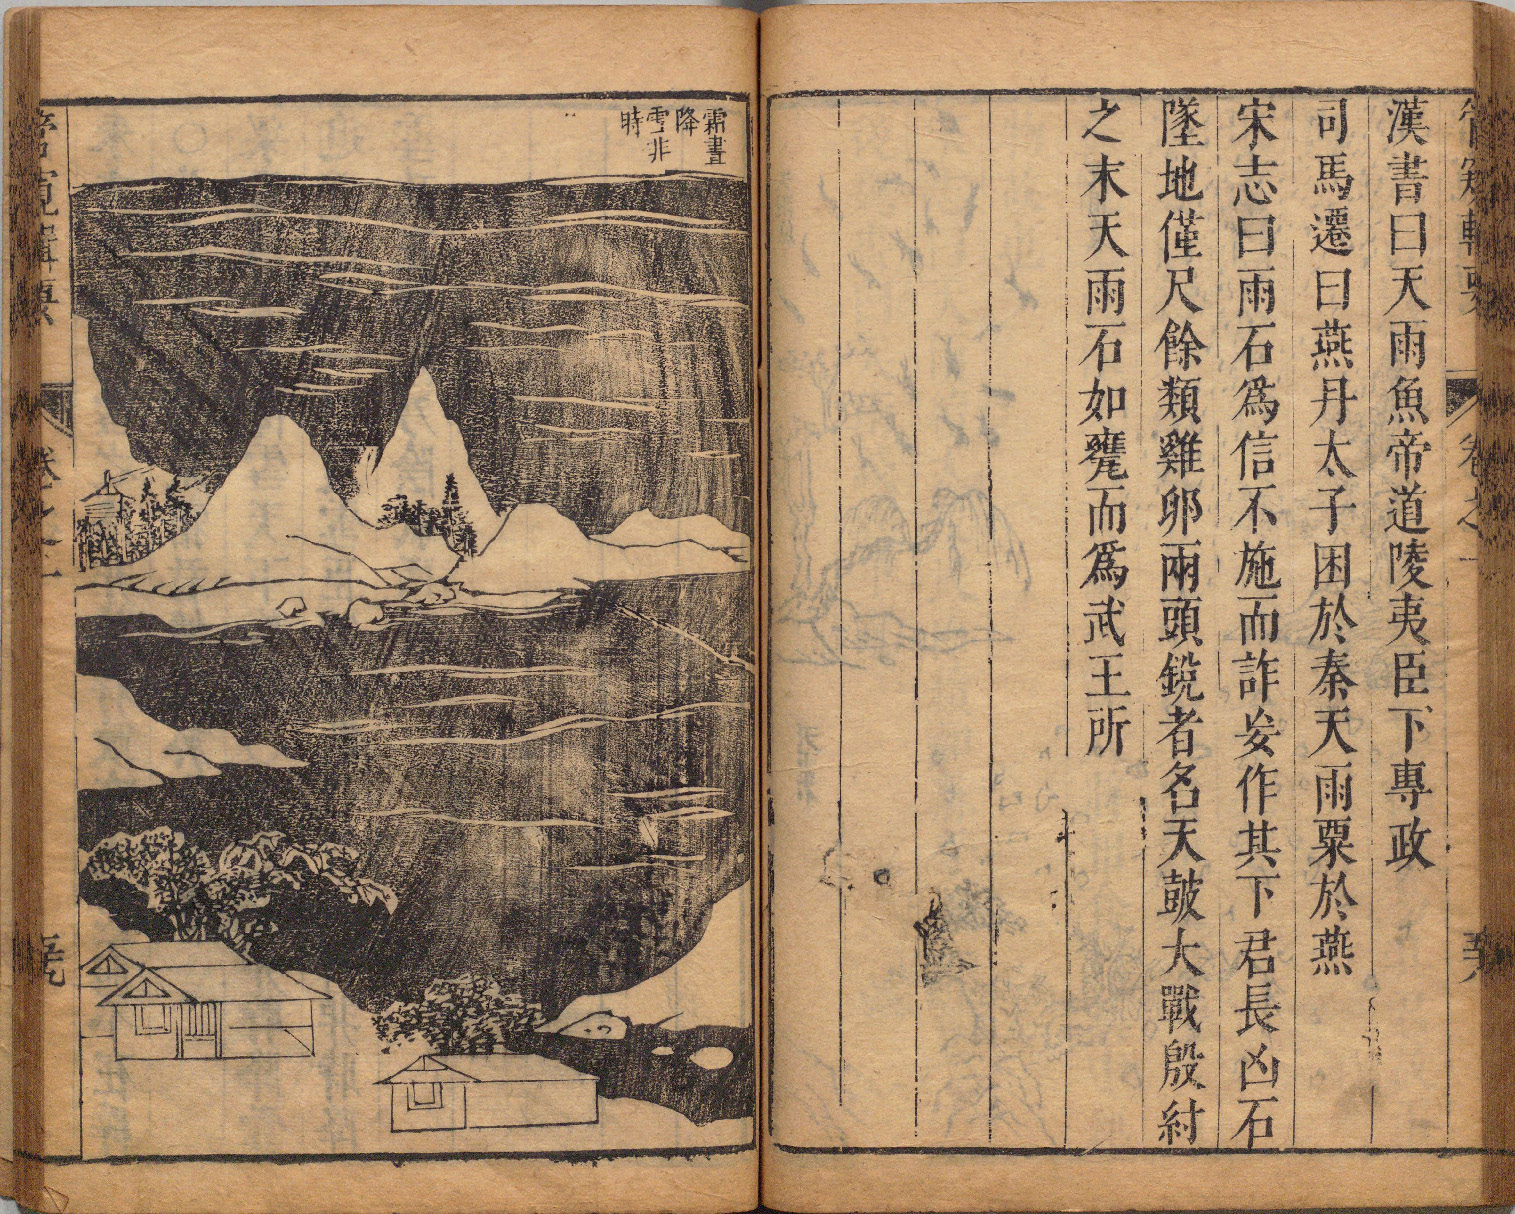 管窺輯要
漢書曰天雨魚帝道陵夷臣下專政
司馬遷曰燕丹太子困於秦天雨粟於燕
宋志曰雨石爲信不施而詐妄作其下君長凶石
墜地僅尺餘類雞卵兩頭銳者名天鼓大戰殷紂
之末天雨石如甕而爲武王所
霜晝
降
雪非
時
管窺輯要